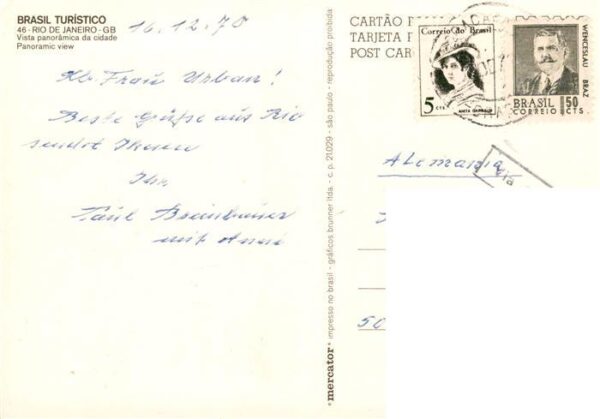 BRASIL TURÍSTICO
46 - RIO DE JANEIRO - GB
Vista panorâmica da cidade
Panoramic view
16.12.70
Frau Urban!
Beste Grüße aus Rio
sendet Ihnen
Ihr
Paul
mit
*mercator* impresso no brasil - gráficos brunner ltda. - c. p. 21.029 - são paulo - reprodução proibida
CARTÃO
TARJETA
POST CAR
Correio do Brasil
5 CTS
ANITA GARIBALDI
WENCESLAU BRAZ
BRASIL 50
CORREIO CTS
Alemania
50